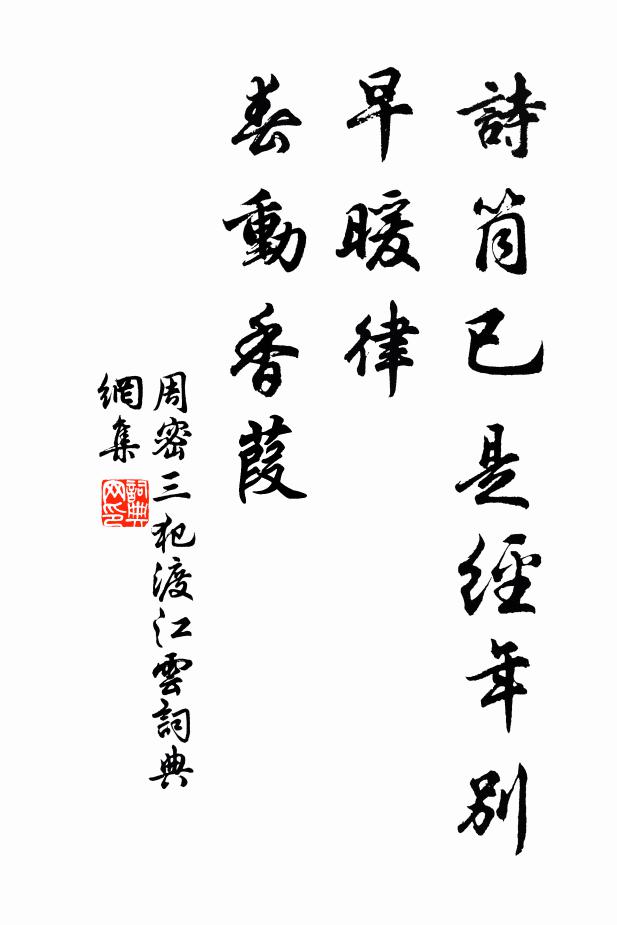 詩筒已是經年別
早暖律
春動香葭
周密三犯渡江雲詞典
網集
詞典
网印